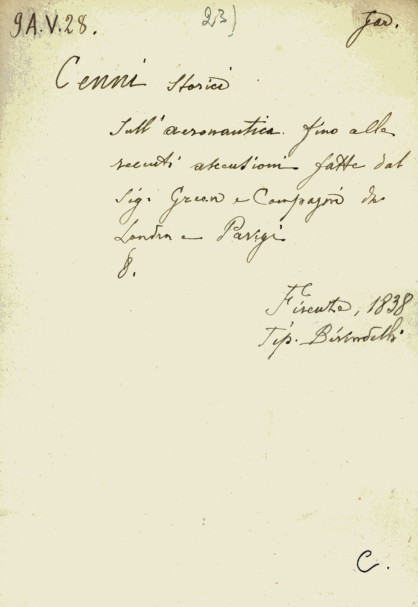 9A.V.28. 23) Gar.
Cenni Storici
Sull' aeronautica fino alle
recenti ascensioni fatte dal
Sig. Green e Compagni da
Londra a Parigi
8.
Firenze, 1838
Tip. Birindelli
C.